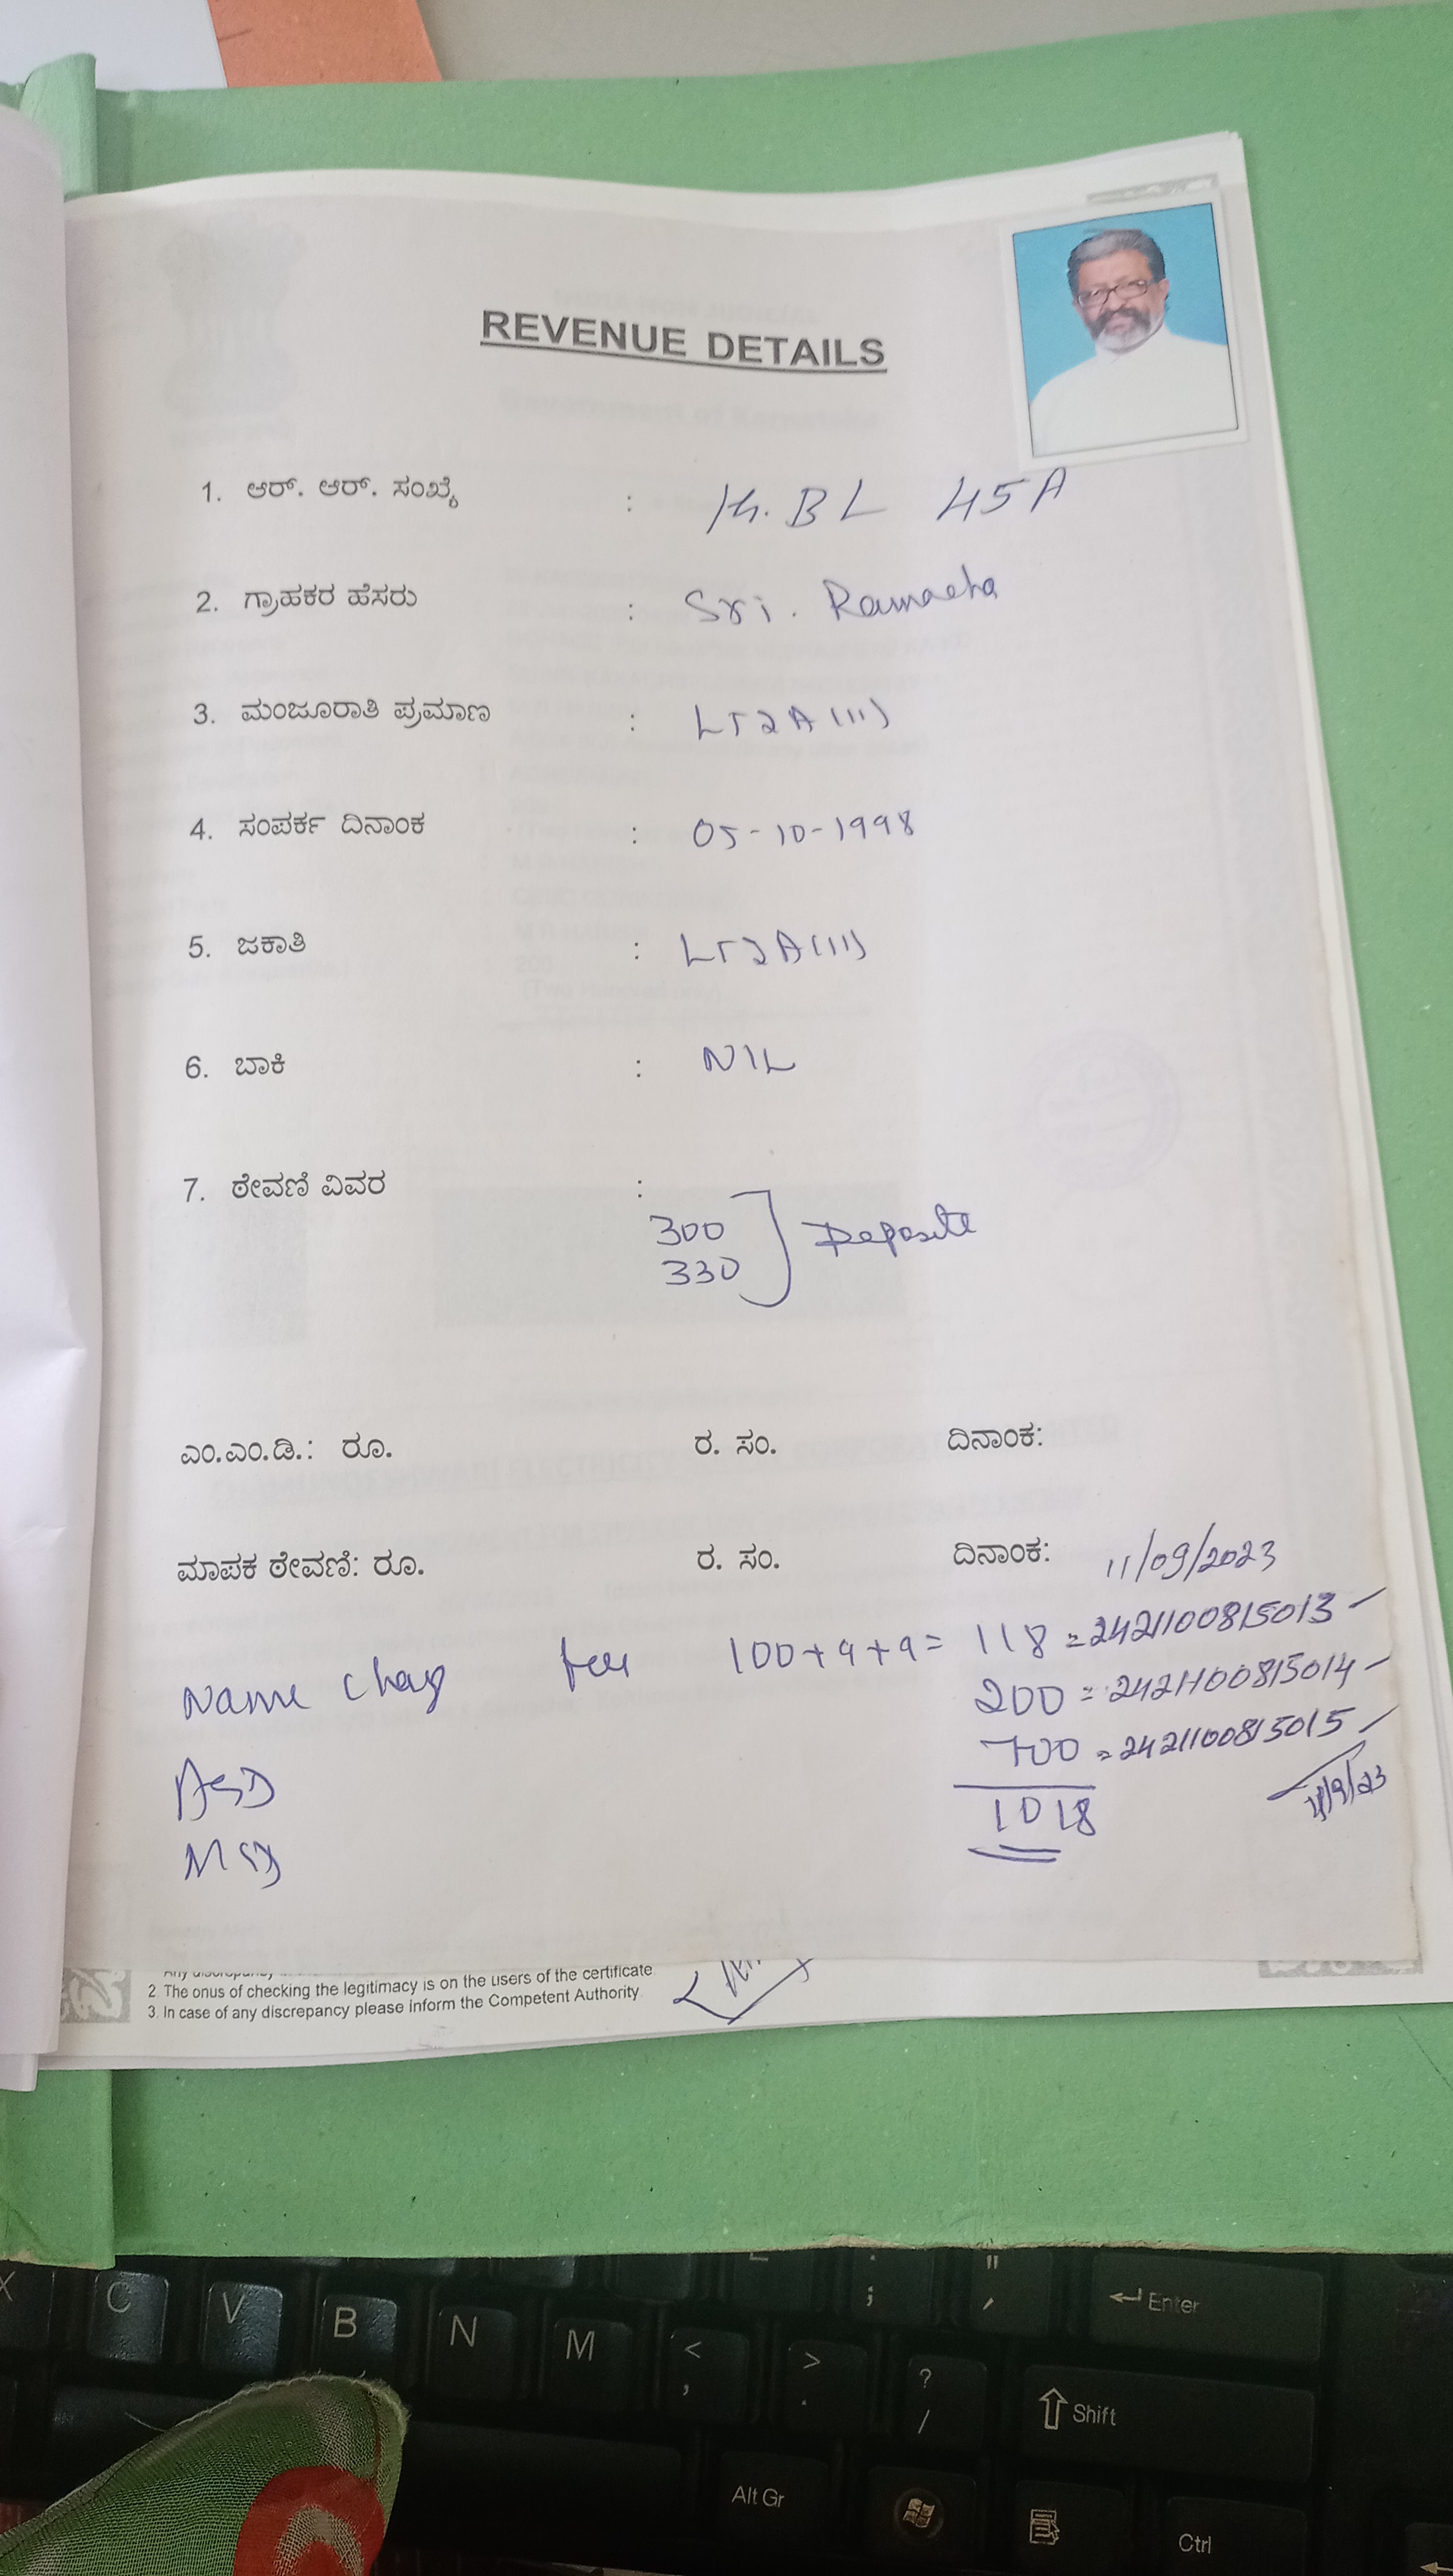 REVENUE DETAILS
1. ಆರ್. ಆರ್. ಸಂಖ್ಯೆ : BL 45A
2. ಗ್ರಾಹಕರ ಹೆಸರು : Sri. Ramacha
3. ಮಂಜೂರಾತಿ ಪ್ರಮಾಣ : LT2A(11)
4. ಸಂಪರ್ಕ ದಿನಾಂಕ : 05-10-1998
5. ಜಕಾತಿ : LT2A(11)
6. ಬಾಕಿ : NIL
7. ಠೇವಣಿ ವಿವರ :
300
330 Deposite
ಎಂ.ಎಂ.ಡಿ.: ರೂ. ರ. ಸಂ. ದಿನಾಂಕ:
ಮಾಪಕ ಠೇವಣಿ: ರೂ. ರ. ಸಂ. ದಿನಾಂಕ: 11/09/2023
Name chag fees 100+9+9= 118 = 2421100815013
200 = 2421100815014
ASD 700 = 2421100815015
MSD 1018
2. The onus of checking the legitimacy is on the users of the certificate
3. In case of any discrepancy please inform the Competent Authority
C V B N M < , > . ? / ; " ' Enter
Shift
Alt Gr Ctrl